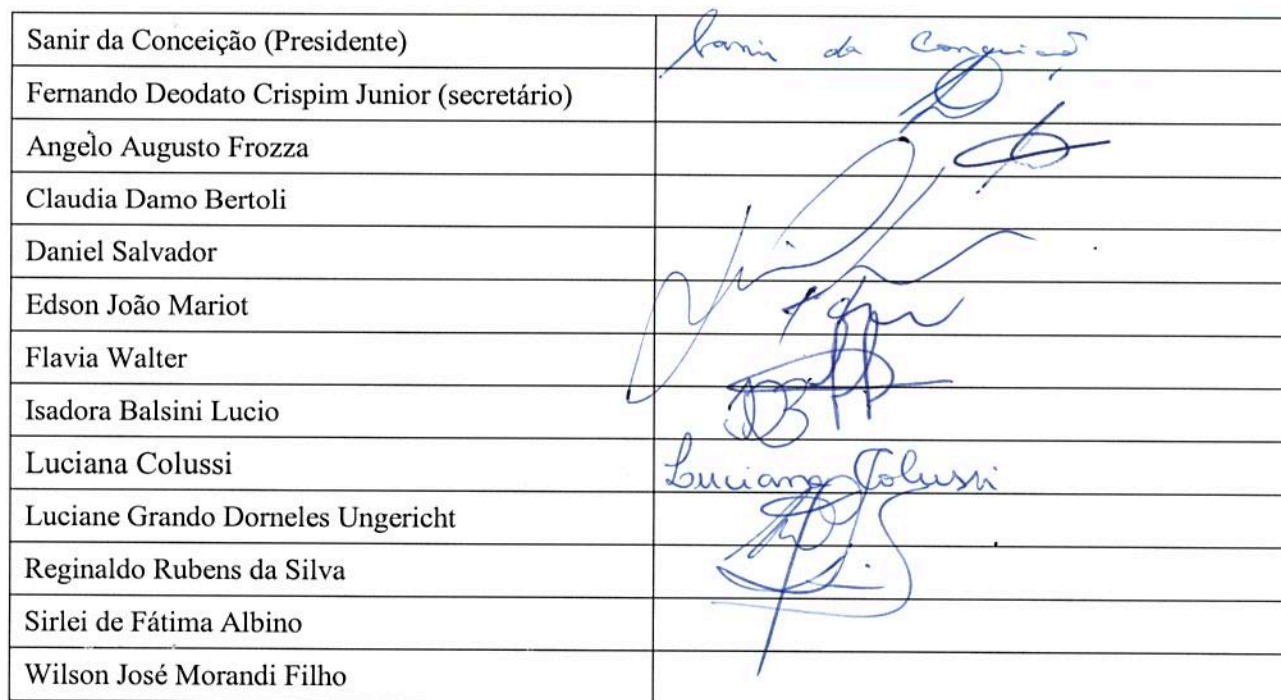 Sanir da Conceição (Presidente) Sanir da Conceição
Fernando Deodato Crispim Junior (secretário)
Angelo Augusto Frozza
Claudia Damo Bertoli
Daniel Salvador
Edson João Mariot
Flavia Walter
Isadora Balsini Lucio
Luciana Colussi Luciana Colussi
Luciane Grando Dorneles Ungericht
Reginaldo Rubens da Silva
Sirlei de Fátima Albino
Wilson José Morandi Filho